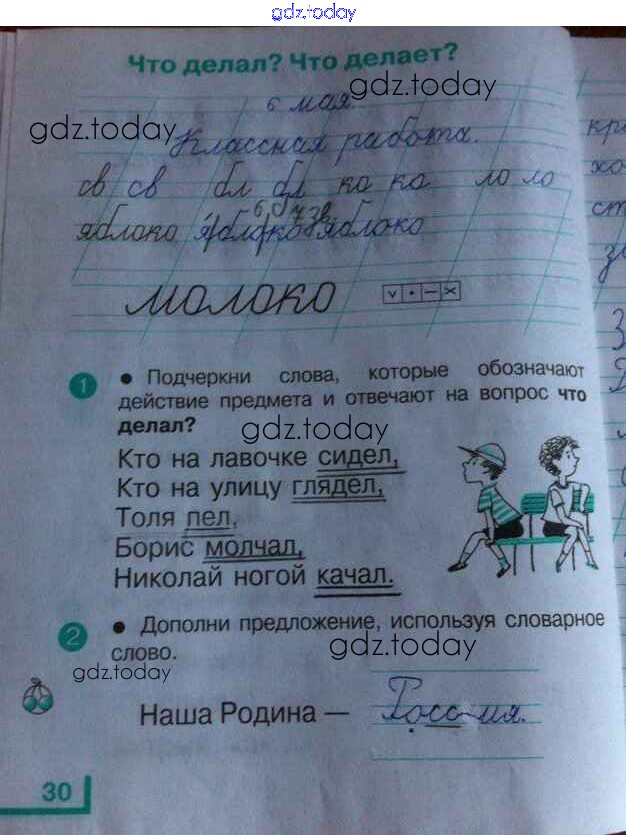 gdz.today
Что делал? Что делает?
gdz.today
6 мая.
gdz.today
Классная работа.
св св бл бл ко ко ло ло
яблоко яблоко яблоко
молоко
1 • Подчеркни слова, которые обозначают
действие предмета и отвечают на вопрос что
делал?
gdz.today
Кто на лавочке сидел,
Кто на улицу глядел,
Толя пел,
Борис молчал,
Николай ногой качал.
2 • Дополни предложение, используя словарное
слово.
gdz.today
gdz.today
Наша Родина — Россия.
30